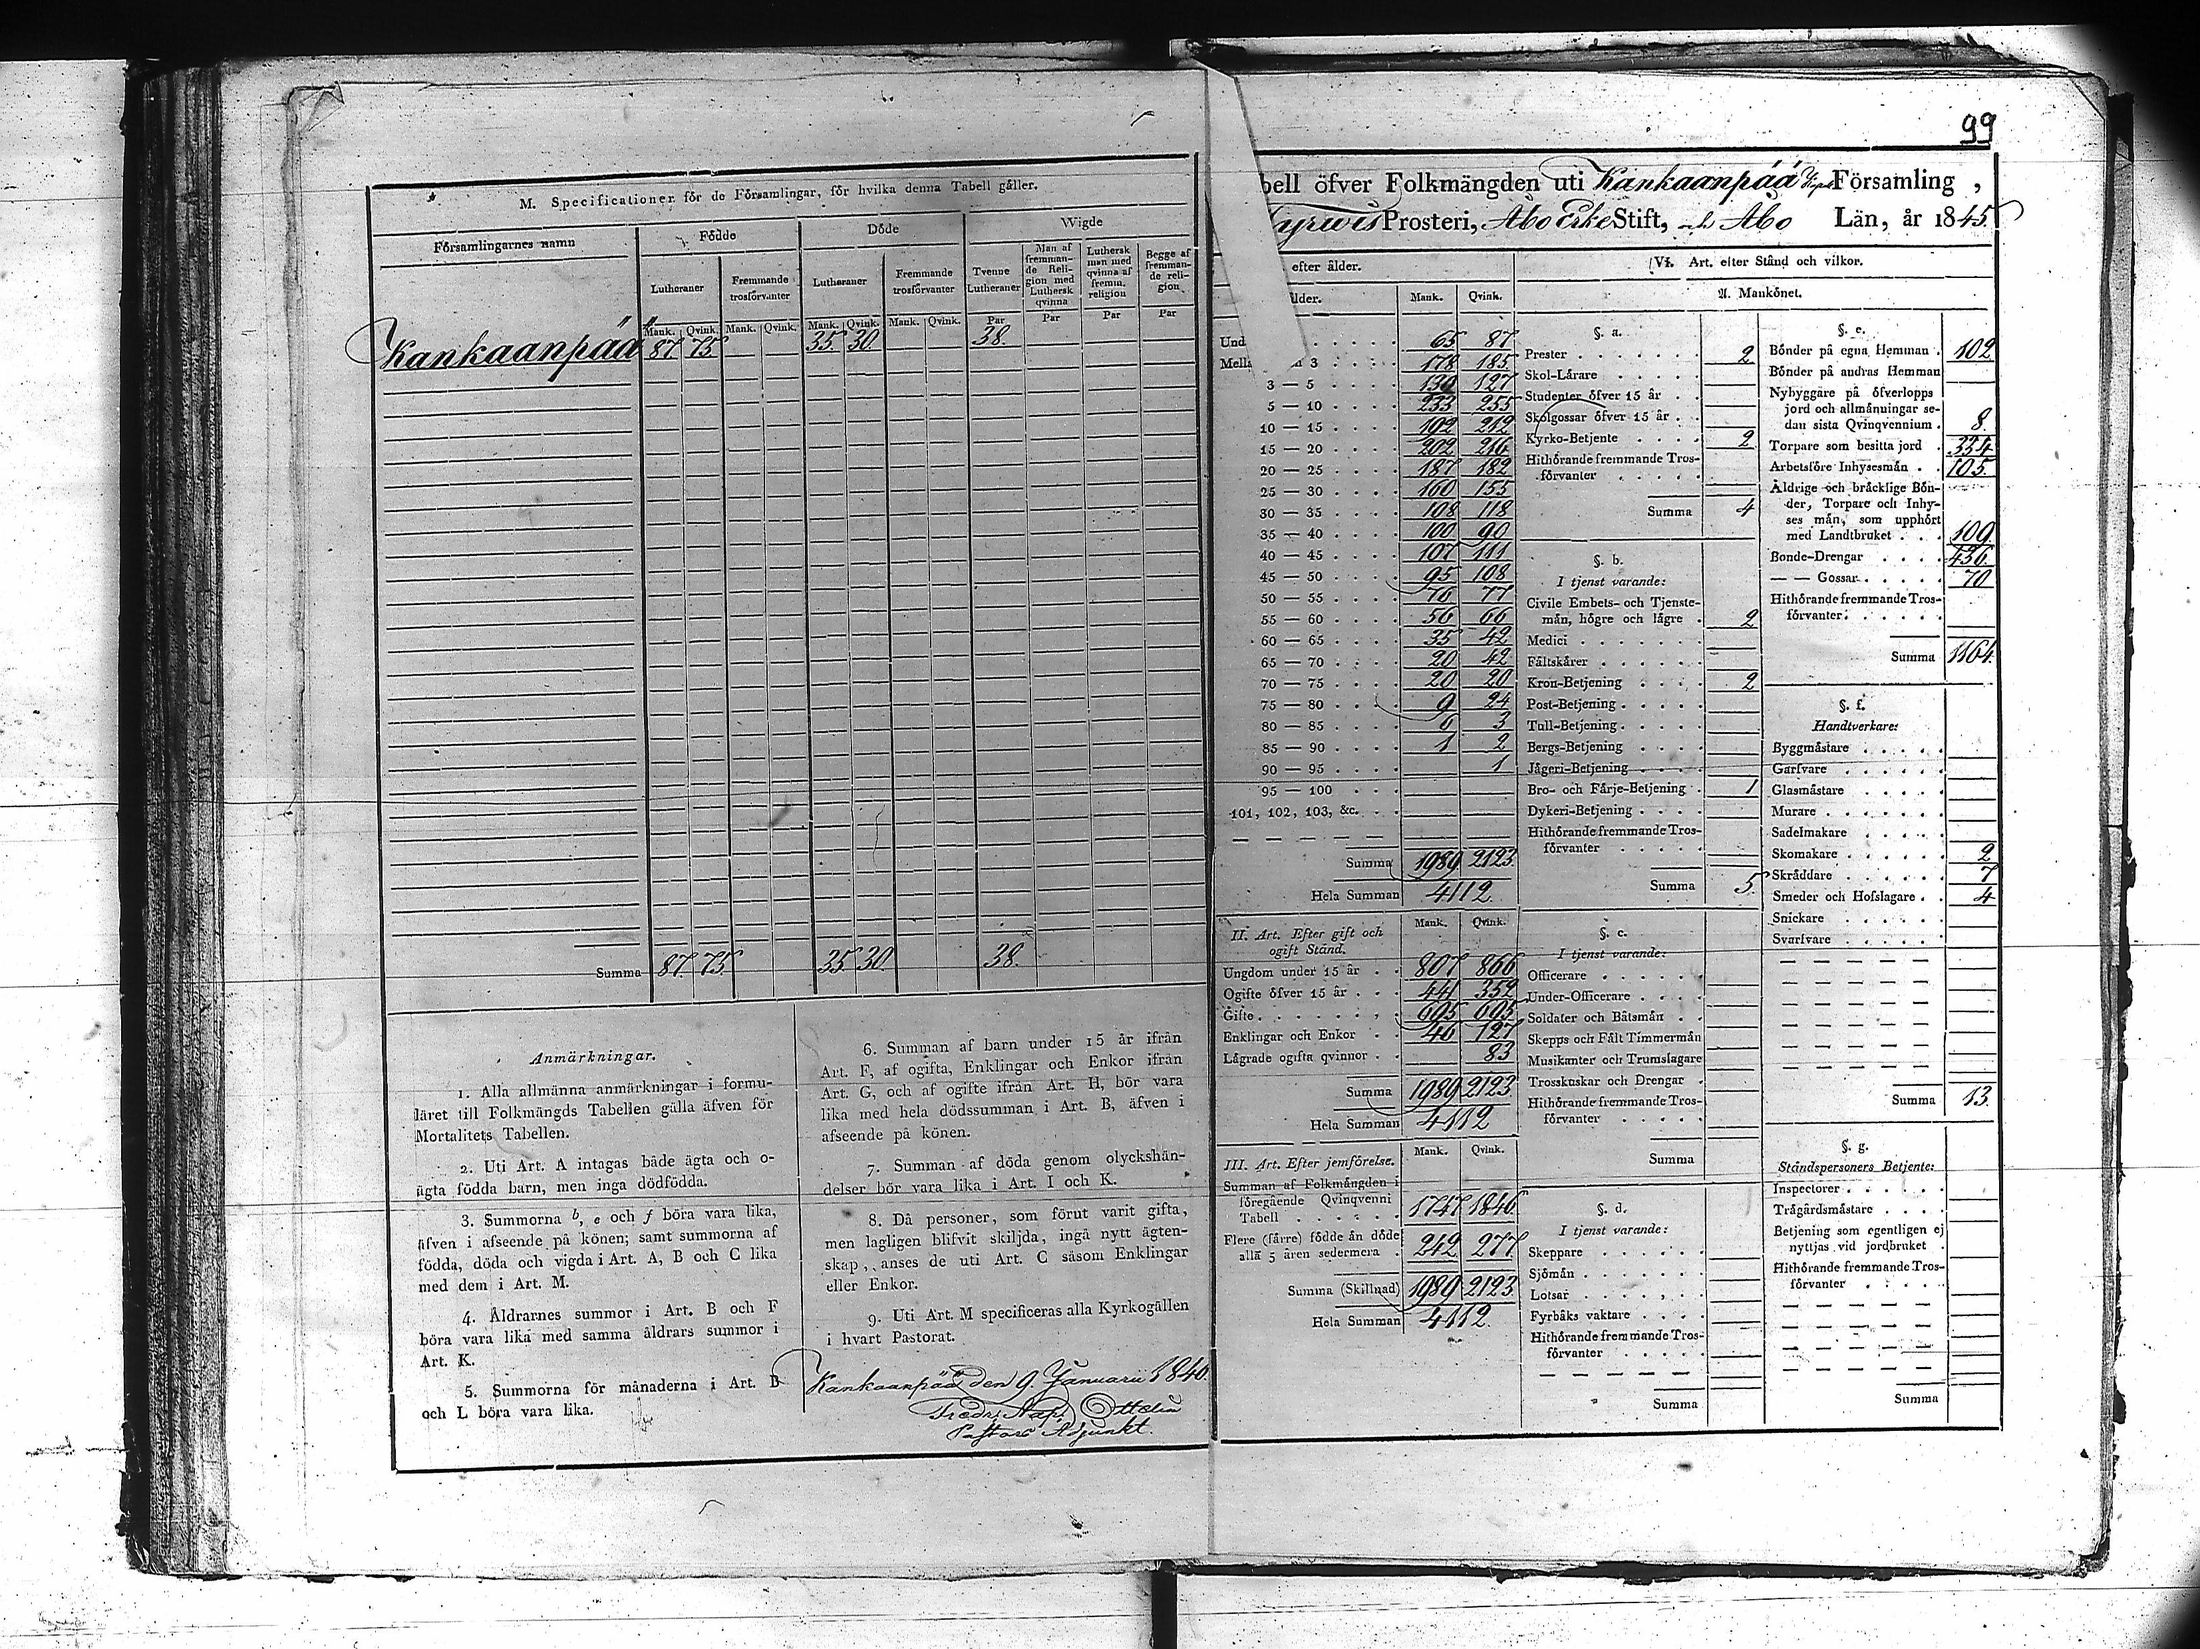 M. Specificationer för de Församlingar, för hvilka denna Tabell gäller.
Församlingarnes namn
Födde
Döde
Wigde
Lutheraner
Fremmande trosförvanter
Lutheraner
Fremmande trosförvanter
Tvenne Lutheraner
Man af fremmande Religion med Luthersk qvinna
Luthersk man med qvinna af fremm. religion
Begge af fremmande religion
Mank. Qvink. Mank. Qvink. Mank. Qvink. Mank. Qvink. Par Par Par Par
Kankaanpää 87 75 35. 30. 38.
Summa 87. 75. 35 30. 38.
Anmärkningar.
1. Alla allmänna anmärkningar i formu-
läret till Folkmängds Tabellen gälla äfven för
Mortalitets Tabellen.
2. Uti Art. A intagas både ägta och o-
ägta födda barn, men inga dödfödda.
3. Summorna b, e och f böra vara lika,
äfven i afseende på könen; samt summorna af
födda, döda och vigda i Art. A, B och C lika
med dem i Art. M.
4. Åldrarnes summor i Art. B och F
böra vara lika med samma åldrars summor i
Art. K.
5. Summorna för månaderna i Art. B
och L böra vara lika.
6. Summan af barn under 15 år ifrån
Art. F, af ogifta, Enklingar och Enkor ifrån
Art. G, och af ogifte ifrån Art. H, bör vara
lika med hela dödssumman i Art. B, äfven i
afseende på könen.
7. Summan af döda genom olyckshän-
delser bör vara lika i Art. I och K.
8. Då personer, som förut varit gifta,
men lagligen blifvit skiljda, ingå nytt ägten-
skap, anses de uti Art. C såsom Enklingar
eller Enkor.
9. Uti Art. M specificeras alla Kyrkogällen
i hvart Pastorat.
Kankaanpää den 9. Januarii 1846.
Fredr. Nap. Ottelin
Pastors Adjunkt.
99
bell öfver Folkmängden uti Kankaanpää Församling,
Prosteri, Åbo Erke Stift, och Åbo Län, år 1845.
efter ålder.
ålder. Mank. Qvink.
Und 65 87
Mella 3 178 185.
3 — 5 130 127
5 — 10 233 255
10 — 15 102 212
15 — 20 202 216
20 — 25 187 182
25 — 30 160 155
30 — 35 108 118
35 — 40 100 90
40 — 45 107 111
45 — 50 95 108
50 — 55 76 77
55 — 60 56 66
60 — 65 35 42
65 — 70 20 42
70 — 75 20 20
75 — 80 9 24
80 — 85 6 3
85 — 90 1 2
90 — 95 1
95 — 100
101, 102, 103, &c.
Summa 1989 2123
Hela Summan 4112.
II. Art. Efter gift och
ogift Stånd. Mank. Qvink.
Ungdom under 15 år 807 866
Ogifte öfver 15 år 441 352
Gifte 695 695
Enklingar och Enkor 46 127
Lägrade ogifta qvinnor 83
Summa 1989 2123
Hela Summan 4112
III. Art. Efter jemförelse. Mank. Qvink.
Summan af Folkmängden i
föregående Qvinqvenni
Tabell 1747 1846
Flere (färre) födde än döde
alla 5 åren sedermera 242 277
Summa (Skillnad) 1989 2123
Hela Summan 4112.
VI. Art. efter Stånd och vilkor.
A. Mankönet.
§. a.
Prester 2
Skol-Lärare
Studenter öfver 15 år
Skolgossar öfver 15 år
Kyrko-Betjente 2
Hithörande fremmande Tros-
förvanter
Summa 4
§. b.
I tjenst varande:
Civile Embets- och Tjenste-
män, högre och lägre 2
Medici
Fältskärer
Kron-Betjening 2
Post-Betjening
Tull-Betjening
Bergs-Betjening
Jägeri-Betjening
Bro- och Färje-Betjening 1
Dykeri-Betjening
Hithörande fremmande Tros-
förvanter
Summa 5
§. c.
I tjenst varande:
Officerare
Under-Officerare
Soldater och Båtsmän
Skepps och Fält Timmermän
Musikanter och Trumslagare
Trosskuskar och Drengar
Hithörande fremmande Tros-
förvanter
Summa
§. d.
I tjenst varande:
Skeppare
Sjömän
Lotsar
Fyrbåks vaktare
Hithörande fremmande Tros-
förvanter
Summa
§. e.
Bönder på egna Hemman 102
Bönder på andras Hemman
Nybyggare på öfverlopps
jord och allmänningar se-
dan sista Qvinqvennium 8.
Torpare som besitta jord 334
Arbetsföre Inhysesmän 105.
Åldrige och bräcklige Bön-
der, Torpare och Inhy-
ses män, som upphört
med Landtbruket 109
Bonde-Drengar 436
— — Gossar 70
Hithörande fremmande Tros-
förvanter
Summa 1164.
§. f.
Handtverkare:
Byggmästare
Garfvare
Glasmästare
Murare
Sadelmakare
Skomakare 2
Skräddare 7
Smeder och Hofslagare 4
Snickare
Svarfvare
Summa 13.
§. g.
Ståndspersoners Betjente:
Inspectorer
Trägårdsmästare
Betjening som egentligen ej
nyttjas vid jordbruket
Hithörande fremmande Tros-
förvanter
Summa